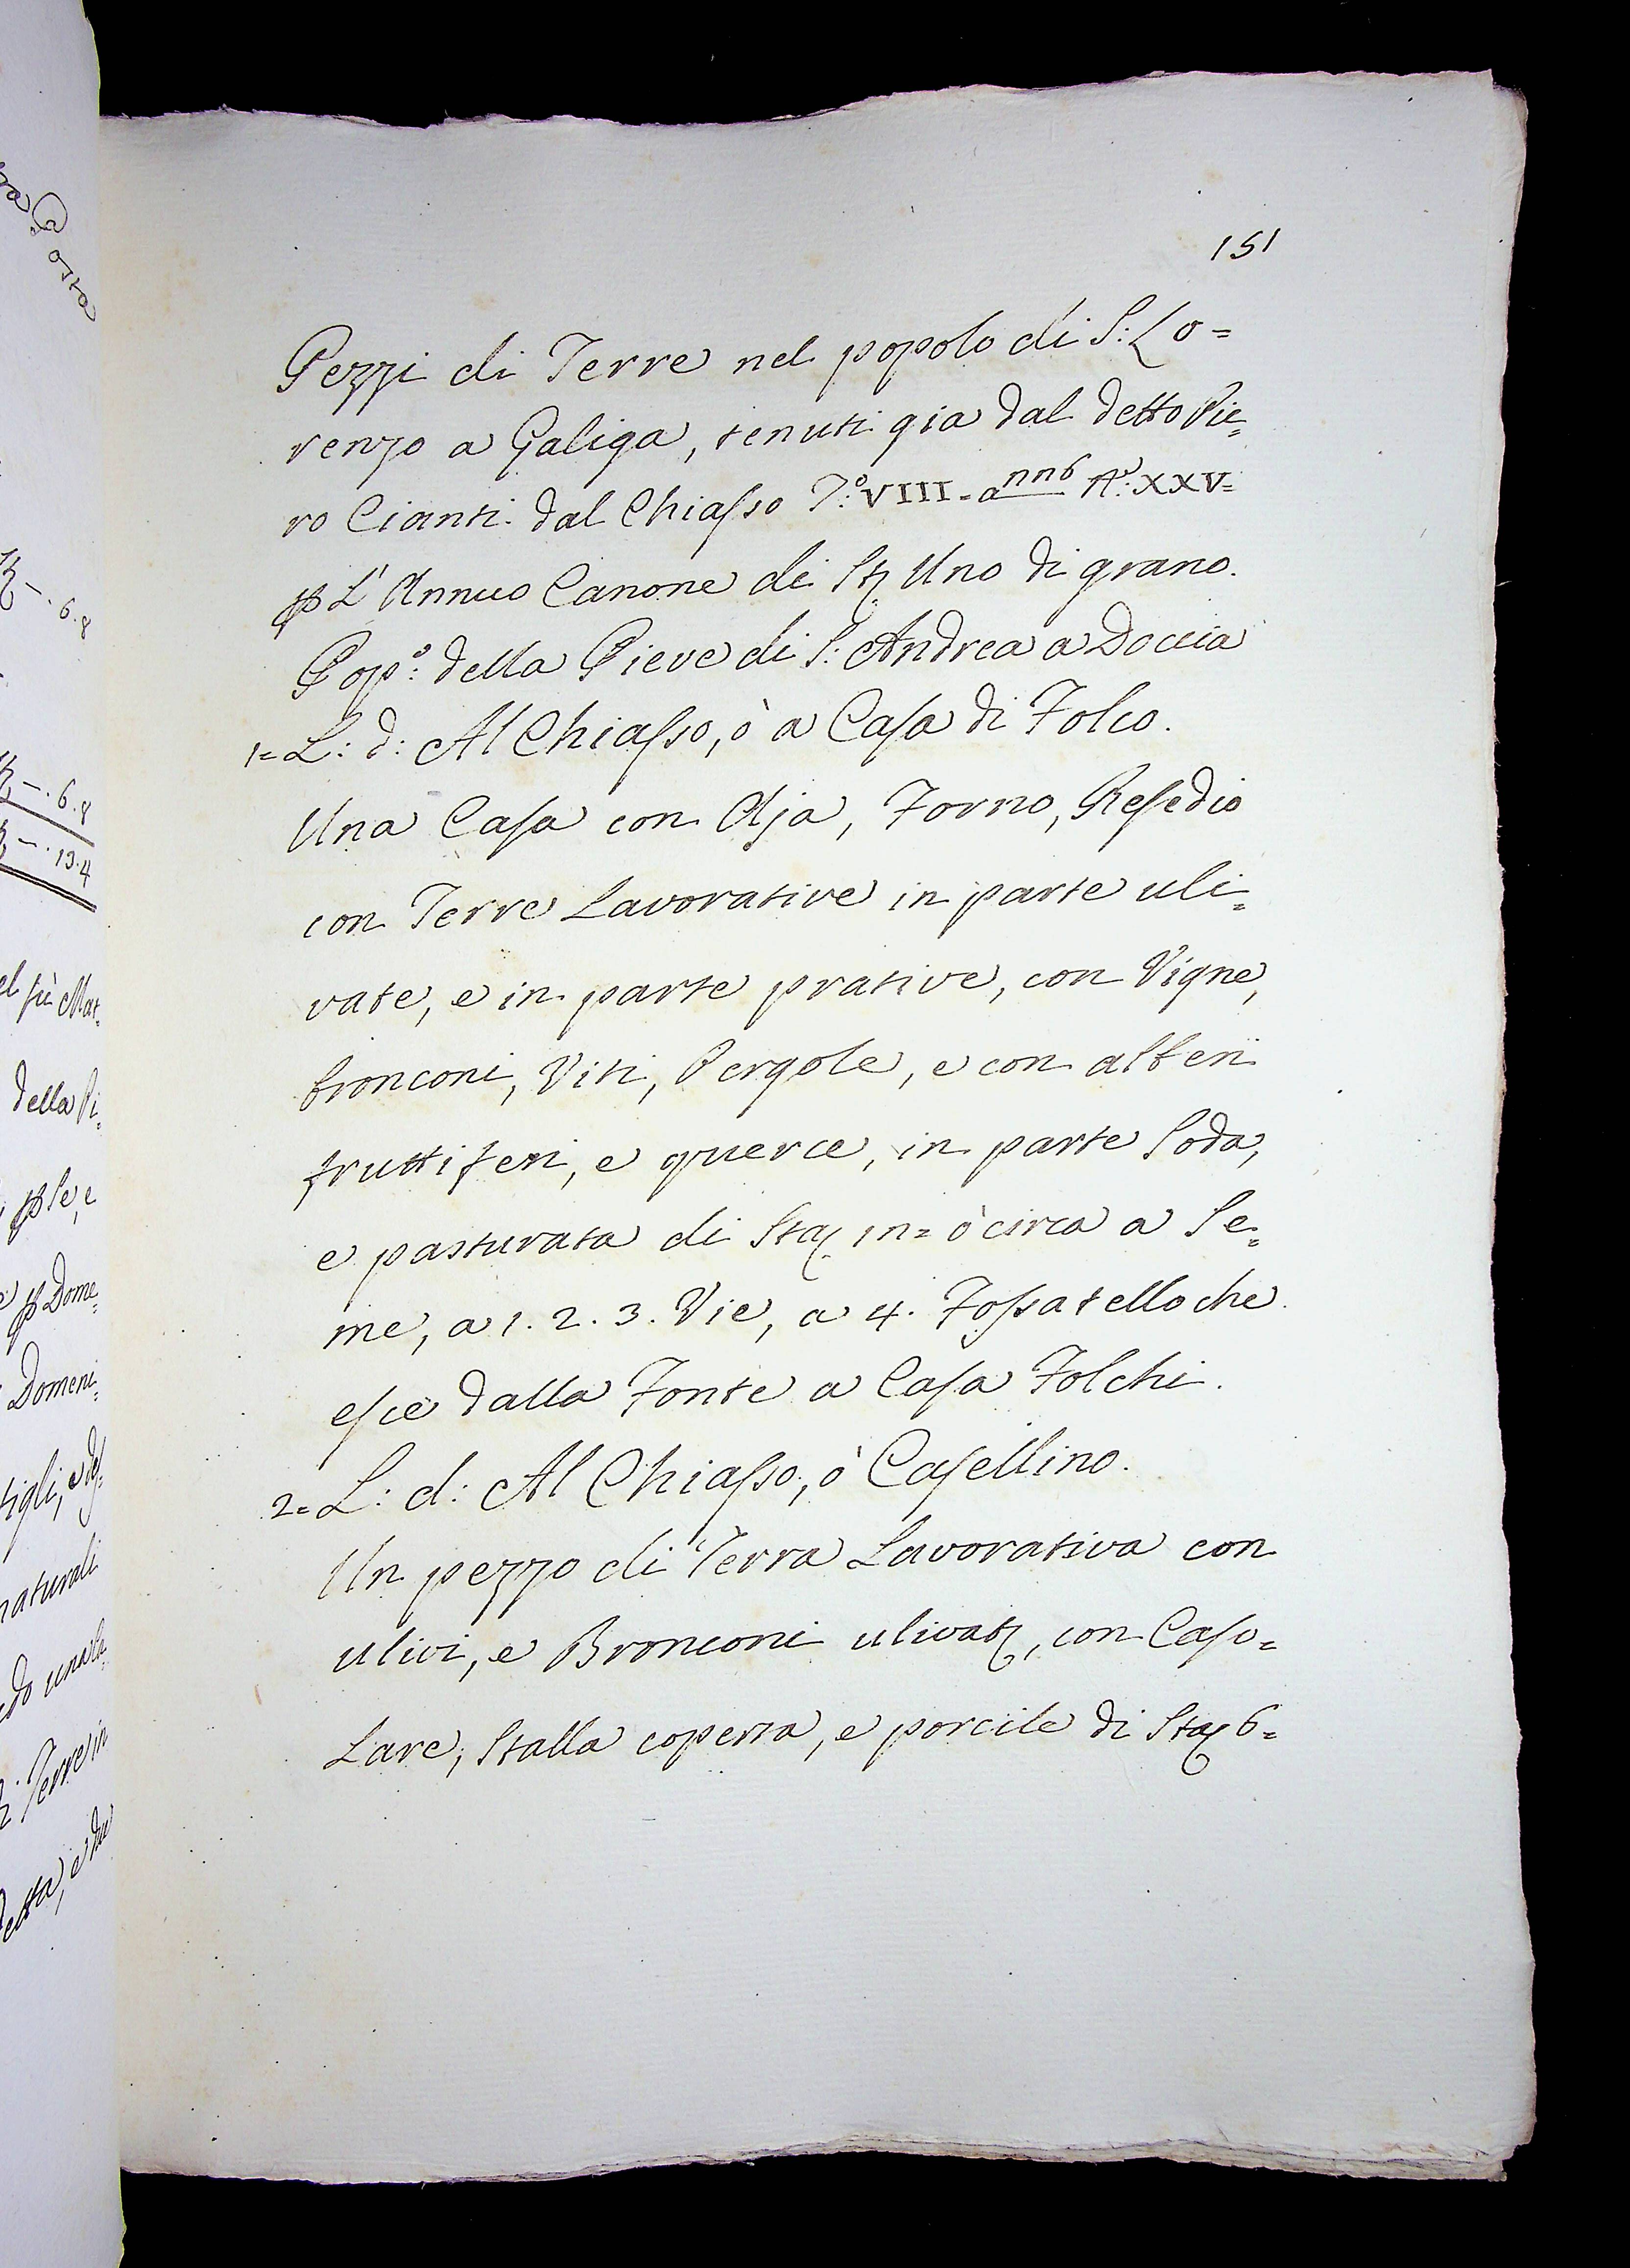 151
Pezzi di Terre nel popolo di S: Lo=
renzo a Galiga, tenuti gia dal detto Pie=
ro Cianti dal Chiasso T:º VIII= a N:º XXV=
L'Annuo Canone di St Uno di grano.
Pop:º della Pieve di S: Andrea a Doccia
1= L: d: Al Chiasso, ò a Casa di Folco.
Una Casa con Aja, Forno, Resedio
con Terre Lavorative in parte uli=
vate, e in parte prative, con Vigne,
bronconi, Viti, Pergole, e con alberi
fruttiferi, e querce, in parte Soda,
e pasturata di Sta ò circa a Se=
me, a 1. 2. 3. Vie, a 4. Fossatello che
esce dalla Fonte a Casa Folchi.
2= L: d: Al Chiasso, ò Casellino.
Un pezzo di Terra Lavorativa con
ulivi, e Bronconi ulivat, con Caso=
Lare, Stalla coperta, e porcile di Sta 6=
6.8
6.8
13.4
della Pi=
Dome=
Domeni=
naturali
Terre in